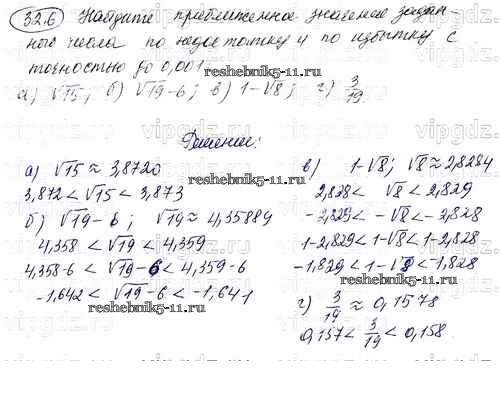 32.6 Найдите приближенное значение задан-
ного числа по недостатку и по избытку с
точностью до 0,001:
reshebnik5-11.ru
а) √15; б) √19-6; в) 1-√8; г) 3/19.
Решение:
а) √15 ≈ 3,8720
3,872 < √15 < 3,873
б) √19-6; √19 ≈ 4,35889
4,358 < √19 < 4,359
4,358-6 < √19-6 < 4,359-6
-1,642 < √19-6 < -1,641
в) 1-√8; √8 ≈ 2,8284
2,828 < √8 < 2,829
-2,829 < -√8 < -2,828
1-2,829 < 1-√8 < 1-2,828
-1,829 < 1-√8 < -1,828
г) 3/19 ≈ 0,1578
0,157 < 3/19 < 0,158.
reshebnik5-11.ru
reshebnik5-11.ru
reshebnik5-11.ru